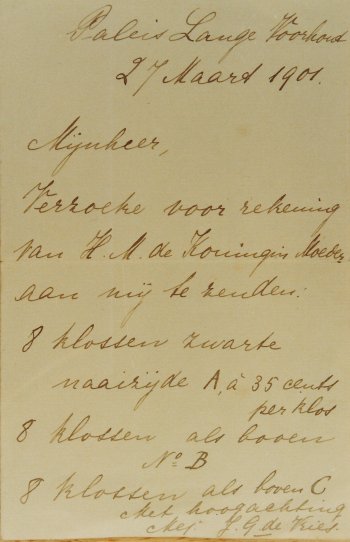 Paleis Lange Voorhout
27 Maart 1901.
Mijnheer,
Verzoeke voor rekening
van H. M. de Koningin Moeder
aan mij te zenden:
8 klossen zwarte
naaizijde A, à 35 cents
per klos
8 klossen als boven
No B
8 klossen als boven C
Met hoogachting
Mej. J. G. de Vries.